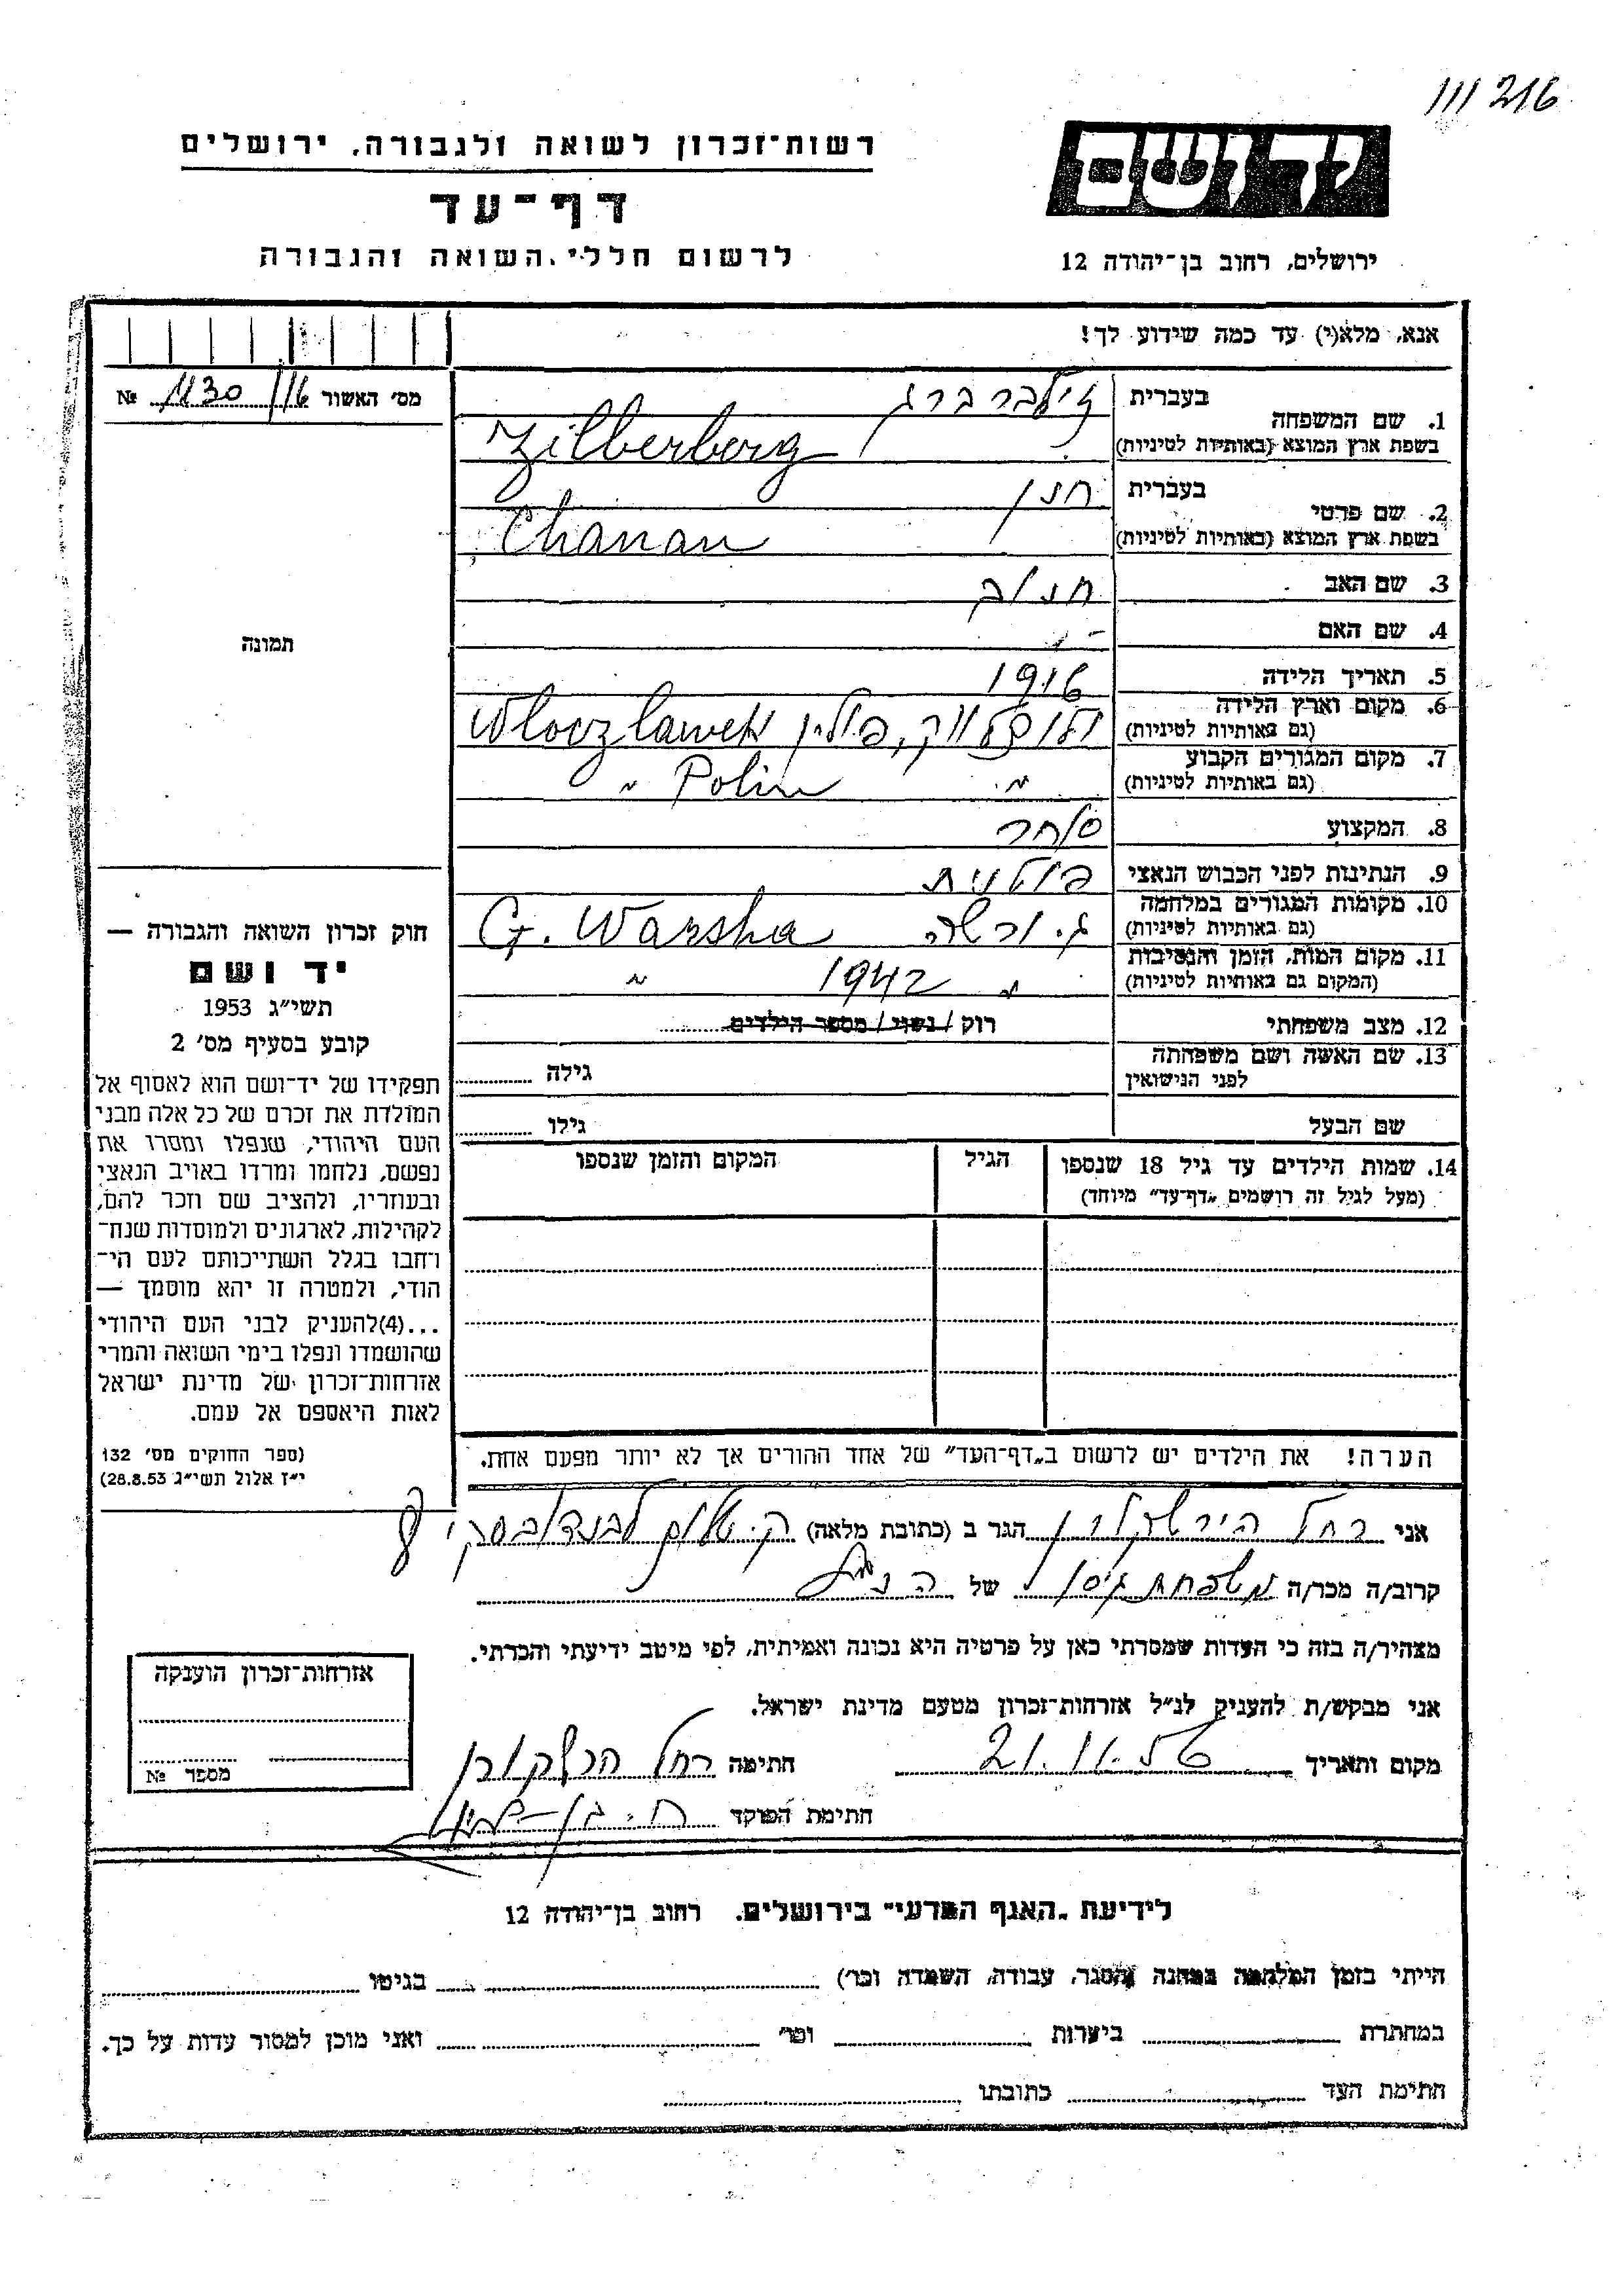 III 216
רשות־זכרון לשואה ולגבורה, ירושלים
יד ושם
דף־עד
לרשום חללי השואה והגבורה
ירושלים, רחוב בן־יהודה 12
אנא, מלא(י) עד כמה שידוע לך!
מס׳ האשור 16/ 1130 №
תמונה
חוק זכרון השואה והגבורה —
יד ושם
תשי״ג 1953
קובע בסעיף מס׳ 2
תפקידו של יד־ושם הוא לאסוף אל
המולדת את זכרם של כל אלה מבני
העם היהודי, שנפלו ומסרו את
נפשם, נלחמו ומרדו באויב הנאצי
ובעוזריו, ולהציב שם וזכר להם,
לקהילות, לארגונים ולמוסדות שנח־
רחבו בגלל השתייכותם לעם הי־
הודי, ולמטרה זו יהא מוסמך —
...(4)להעניק לבני העם היהודי
שהושמדו ונפלו בימי השואה והמרי
אזרחות־זכרון של מדינת ישראל
לאות היאספם אל עמם.
(ספר החוקים מס׳ 132
י״ז אלול תשי״ג 28.8.53)
1. שם המשפחה בעברית זילברברג
בשפת ארץ המוצא (באותיות לטיניות) Zilberberg
2. שם פרטי בעברית חנן
בשפת ארץ המוצא (באותיות לטיניות) Chanan
3. שם האב
4. שם האם -
5. תאריך הלידה 1916
6. מקום וארץ הלידה
(גם באותיות לטיניות) ולוצלווק, פולין Wloczlawek
7. מקום המגורים הקבוע
(גם באותיות לטיניות) " Polin "
8. המקצוע סוחר
9. הנתינות לפני הכבוש הנאצי פולנית
10. מקומות המגורים במלחמה
(גם באותיות לטיניות) ג. ורשה G. Warsha
11. מקום המות, הזמן והנסיבות
(המקום גם באותיות לטיניות) " 1942 "
12. מצב משפחתי רוק / נשוי / מספר הילדים
13. שם האשה ושם משפחתה
לפני הנישואין גילה
שם הבעל גילו
14. שמות הילדים עד גיל 18 שנספו הגיל המקום והזמן שנספו
(מעל לגיל זה רושמים „דף־עד״ מיוחד)
הערה! את הילדים יש לרשום ב„דף־העד״ של אחד ההורים אך לא יותר מפעם אחת.
אני רחל הירשקורן הגר ב (כתובת מלאה) ק.
קרוב/ה מכר/ה משפחת גיסן של הנ״ל
מצהיר/ה בזה כי העדות שמסרתי כאן על פרטיה היא נכונה ואמיתית, לפי מיטב ידיעתי והכרתי.
אני מבקש/ת להעניק לנ״ל אזרחות־זכרון מטעם מדינת ישראל.
מקום ותאריך 21.11.56 חתימה רחל הרשקורן
חתימת הפוקד
אזרחות־זכרון הוענקה
מספר №
לידיעת „האגף המדעי״ בירושלים. רחוב בן־יהודה 12
הייתי בזמן המלחמה במחנה (הסגר, עבודה, השמדה וכו׳) בגיטו
במחתרת ביערות וכו׳ ואני מוכן למסור עדות על כך.
חתימת העד כתובתו